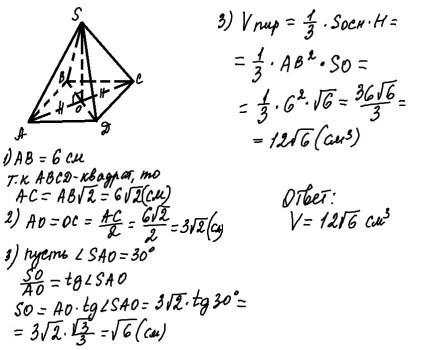 S
B
C
H
H
O
A
D
1) AB = 6 см
т.к ABCD-квадрат, то
AC = AB√2 = 6√2 (см)
2) AO = OC = AC/2 = 6√2/2 = 3√2 (см)
3) пусть ∠SAO = 30°
SO/AO = tg∠SAO
SO = AO · tg∠SAO = 3√2 · tg 30° =
= 3√2 · √3/3 = √6 (см)
3) Vпир = 1/3 · Sосн · H =
= 1/3 · AB² · SO =
= 1/3 · 6² · √6 = 36√6/3 =
= 12√6 (см³)
Ответ:
V = 12√6 см³